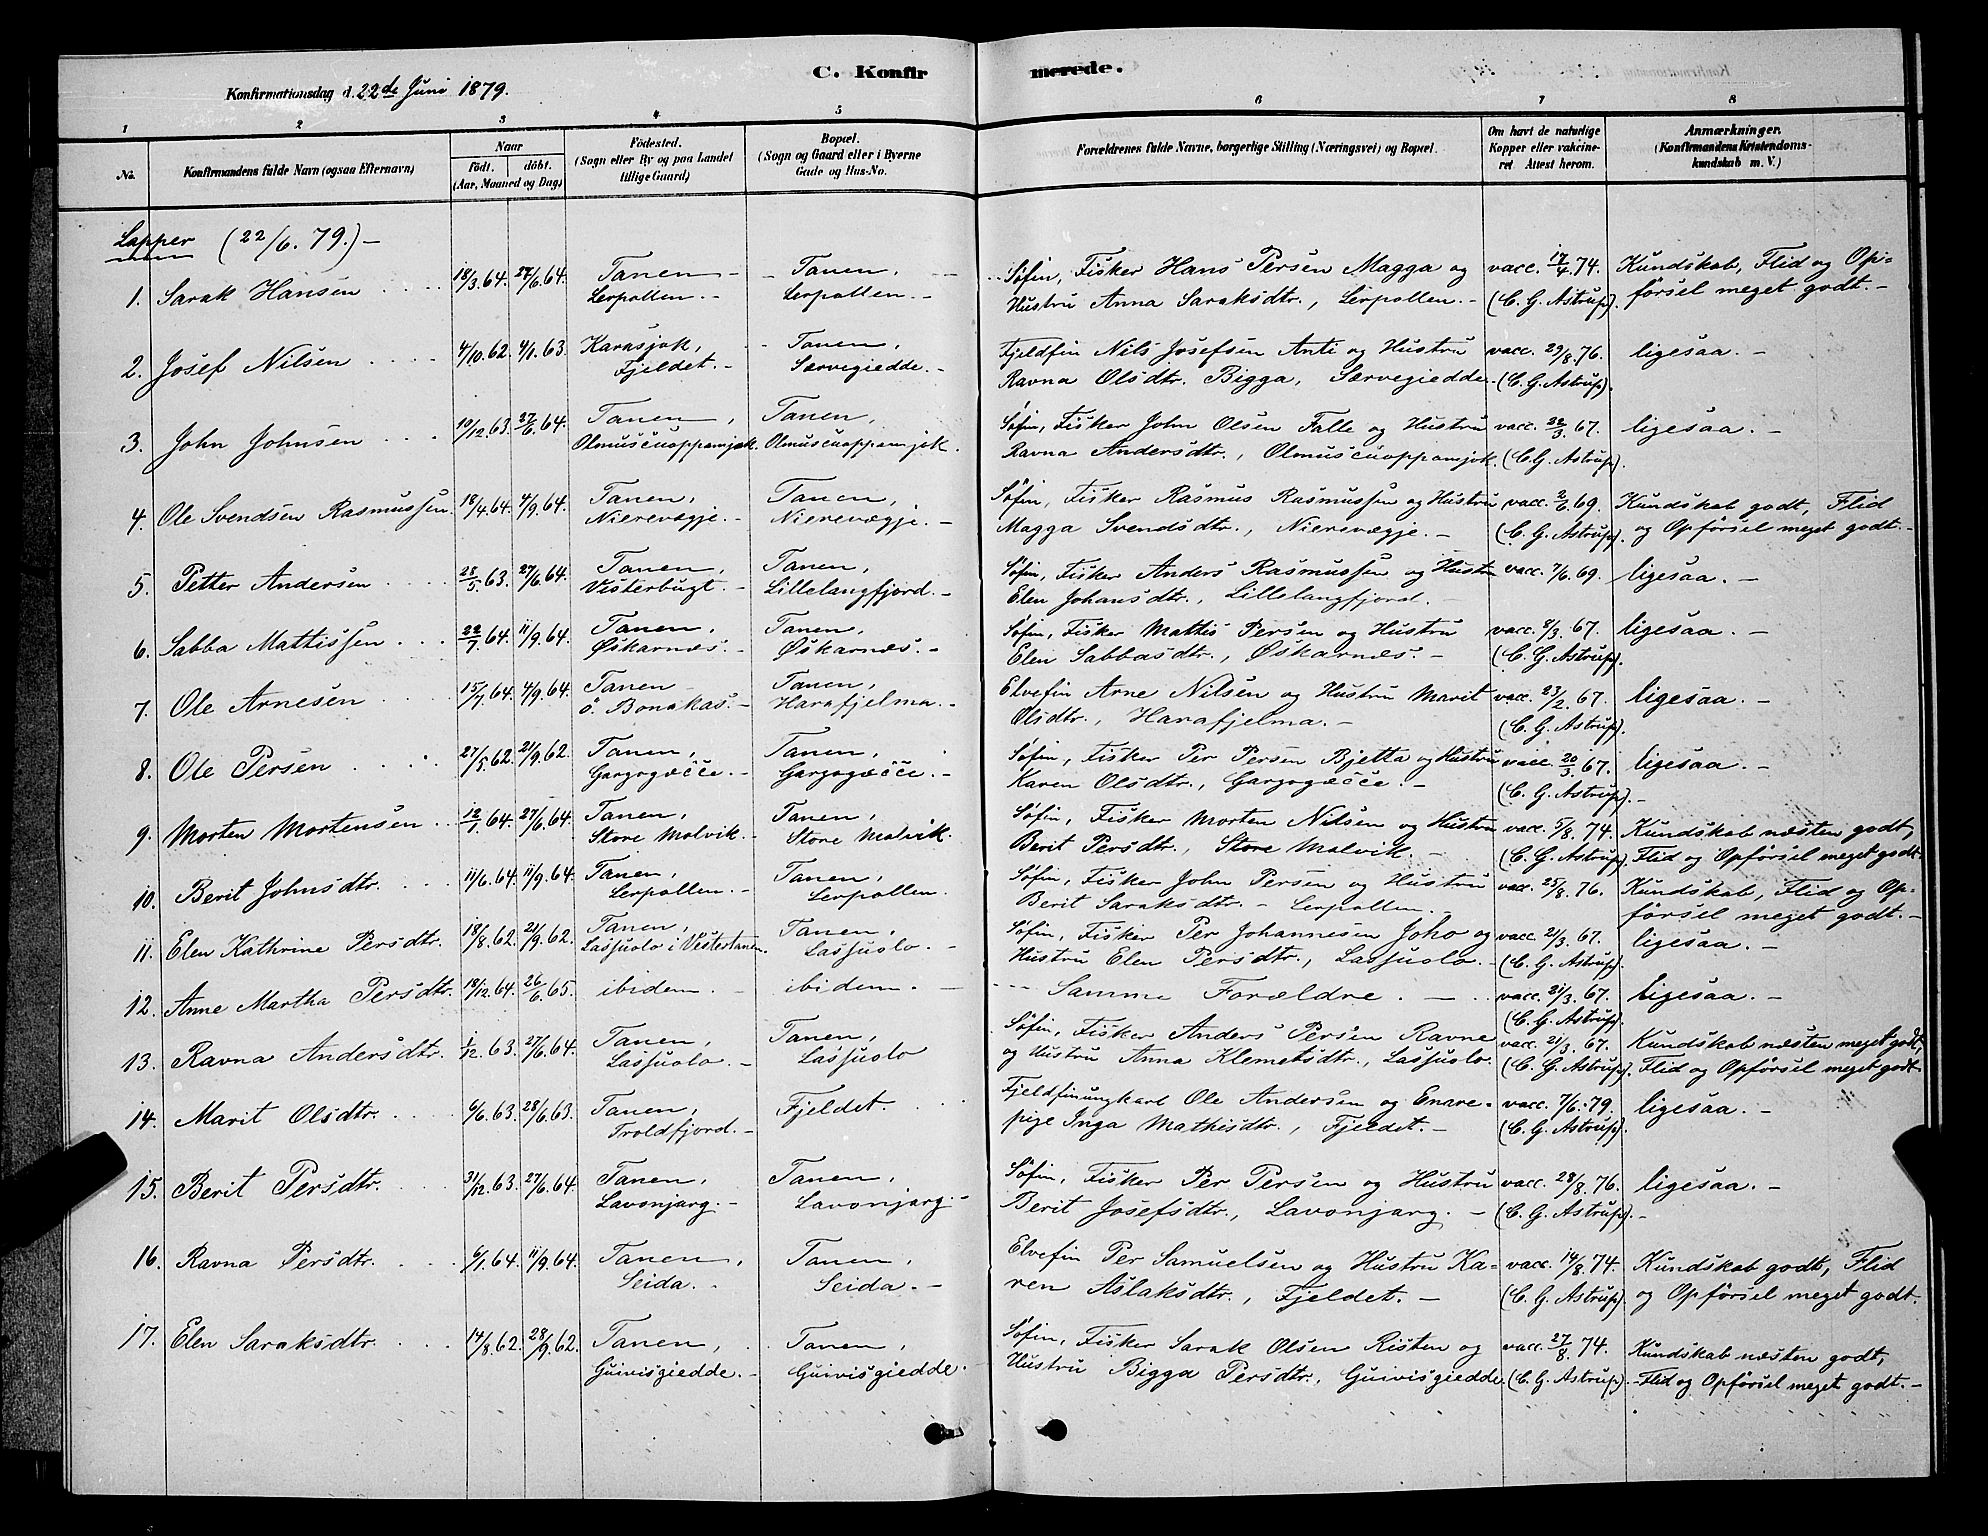 C. Konfirmerede.
Konfirmationsdag d. 22de Juni 1879.
1 2 3 4 5 6 7 8
No.
Konfirmandens fulde Navn (ogsaa Efternavn)
Naar
födt. döbt.
(Aar, Maaned og Dag)
Födested.
(Sogn eller By og paa Landet
tillige Gaard)
Bopæl.
(Sogn og Gaard eller i Byerne
Gade og Hus-No.
Forældrenes fulde Navne, borgerlige Stilling (Næringsvei) og Bopæl.
Om havt de naturlige
Kopper eller vakcine-
ret Attest herom.
Anmærkninger.
(Konfirmandens Kristendoms-
kundskab m. V.)
Lapper (22/6. 79.) -
1. Sarak Hansen 18/3.64. 27/6.64. Tanen - Tanen, Søfin, Fisker Hans Persen Magga og vacc. 17/4.74. Kundskab, Flid og Op-
Lerpollen. - Lerpollen. - Hustru Anna Saraksdtr., Lerpollen. - (C. G. Astrup). försel meget godt. -
2. Josef Nilsen 4/10.62. 4/1.63. Karasjok, Tanen, Fjeldfin Nils Josefsen Anti og Hustru vacc. 29/8.76. ligesaa. -
Fjeldet. - Særvegiedde. - Ravna Olsdtr. Bigga, Særvegiedde. - (C. G. Astrup).
3. John Johnsen 10/12.63. 27/6.64. Tanen, Tanen, Søfin, Fisker John Olsen Falle og Hustru vacc. 22/3.67. ligesaa. -
Olmuscuoppamjok. Olmuscuoppamjok. Ravna Andersdtr., Olmuscuoppamjok. (C. G. Astrup).
4. Ole Svendsen Rasmussen. 18/4.64. 4/9.64. Tanen, Tanen, Søfin, Fisker Rasmus Rasmussen og Hustru vacc. 2/6.69. Kundskab godt, Flid
Nierevægje. - Nierevægje. - Magga Svendsdtr., Nierevægje. - (C. G. Astrup). og Opförsel meget godt. -
5. Petter Andersen 28/5.63. 27/6.64. Tanen, Tanen, Søfin, Fisker Anders Rasmussen og Hustru vacc. 7/6.69. ligesaa. -
Vesterbugt. - Lillelangfjord. - Elen Johansdtr., Lillelangfjord. -
6. Sabba Mattissen 22/7.64. 11/9.64. Tanen, Tanen, Søfin, Fisker Mattis Persen og Hustru vacc. 8/3.67. ligesaa. -
Øskarnæs. - Øskarnæs. - Elen Sabbasdtr., Øskarnæs. - (C. G. Astrup).
7. Ole Arnesen 15/7.64. 4/9.64. Tanen Tanen, Elvefin Arne Nilsen og Hustru Marit vacc. 23/2.67. ligesaa. -
ö. Bonakas. - Harafjelma. - Olsdtr., Harafjelma. - (C. G. Astrup).
8. Ole Persen 27/5.62. 21/9.62. Tanen, Tanen, Søfin, Fisker Per Persen Bjetta og Hustru vacc. 20/3.67. ligesaa. -
Gargogæčče. - Gargogæčče. - Karen Olsdtr., Gargogæčče. - (C. G. Astrup). -
9. Morten Mortensen 12/1.64. 27/6.64. Tanen, Tanen, Søfin, Fisker Morten Nilsen og Hustru vacc. 5/8.74. Kundskab næsten godt,
Store Molvik. - Store Molvik. Berit Persdtr., Store Molvik. - (C. G. Astrup). Flid og Opförsel meget godt.
10. Berit Johnsdtr. 11/6.64. 11/9.64. Tanen, Tanen, Søfin, Fisker John Persen og Hustru vacc. 25/8.76. Kundskab, Flid og Op-
Lerpollen. - Lerpollen. Berit Saraksdtr. - Lerpollen. försel meget godt. -
11. Elen Kathrine Persdtr. 18/8.62. 21/9.62. Tanen, Tanen, Søfin, Fisker Per Johannesen Joho og vacc. 21/3.67. ligesaa. -
Lasjuolo i Vestertanen. Lasjuolo. - Hustru Elen Persdtr., Lasjuolo. - (C. G. Astrup).
12. Anne Martha Persdtr. 18/12.64. 26/6.65. ibidem. - ibidem. - Samme Forældre. - vacc. 21/3.67. ligesaa. -
(C. G. Astrup).
13. Ravna Andersdtr. 1/12.63. 27/6.64. Tanen, Tanen, Søfin, Fisker Anders Persen Ravne vacc. 21/3.67. Kundskab næsten meget godt,
Lasjuolo. - Lasjuolo og Hustru Anna Klemetsdtr., Lasjuolo. (C. G. Astrup). Flid og Opförsel meget godt.
14. Marit Olsdtr. 6/6.63. 28/6.63. Tanen, Fjeldet. Fjeldfinungkarl Ole Andersen og Enare- vacc. 7/6.79. ligesaa. -
Troldfjord. - pige Inga Mathisdtr., Fjeldet. - (C. G. Astrup).
15. Berit Persdtr. 31/12.63. 27/6.64. Tanen, Tanen, Søfin, Fisker Per Persen og Hustru vacc. 28/8.76. ligesaa. -
Lavonjarg. - Lavonjarg. - Berit Josefsdtr., Lavonjarg. - (C. G. Astrup). -
16. Ravna Persdtr. 6/1.64. 11/9.64. Tanen, Tanen, Elvefin Per Samuelsen og Hustru Ka- vacc. 14/8.74. Kundskab godt, Flid
Seida. - Seida. - ren Aslaksdtr., Fjeldet. - (C. G. Astrup). og Opförsel meget godt.
17. Elen Saraksdtr. 14/8.62. 28/9.62. Tanen, Tanen, Søfin, Fisker Sarak Olsen Risten og vacc. 27/8.74. Kundskab næsten godt,
Guivisgiedde. - Guivisgiedde. Hustru Bigga Persdtr., Guivisgiedde. (C. G. Astrup). - Flid og Opförsel meget godt. -